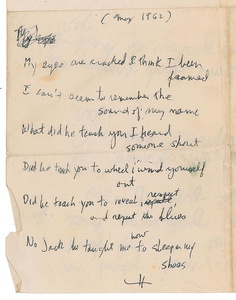 (Mar 1962)
My eyes are cracked & think I been
framed
I can't seem to remember the
sound of my name
What did he teach you I heard
someone shout
Did he teach you to wheel & wind yourself
out
Did he teach you to reveal, respect,
and repent the blues
No Jack he taught me how to sleep in my
shoes